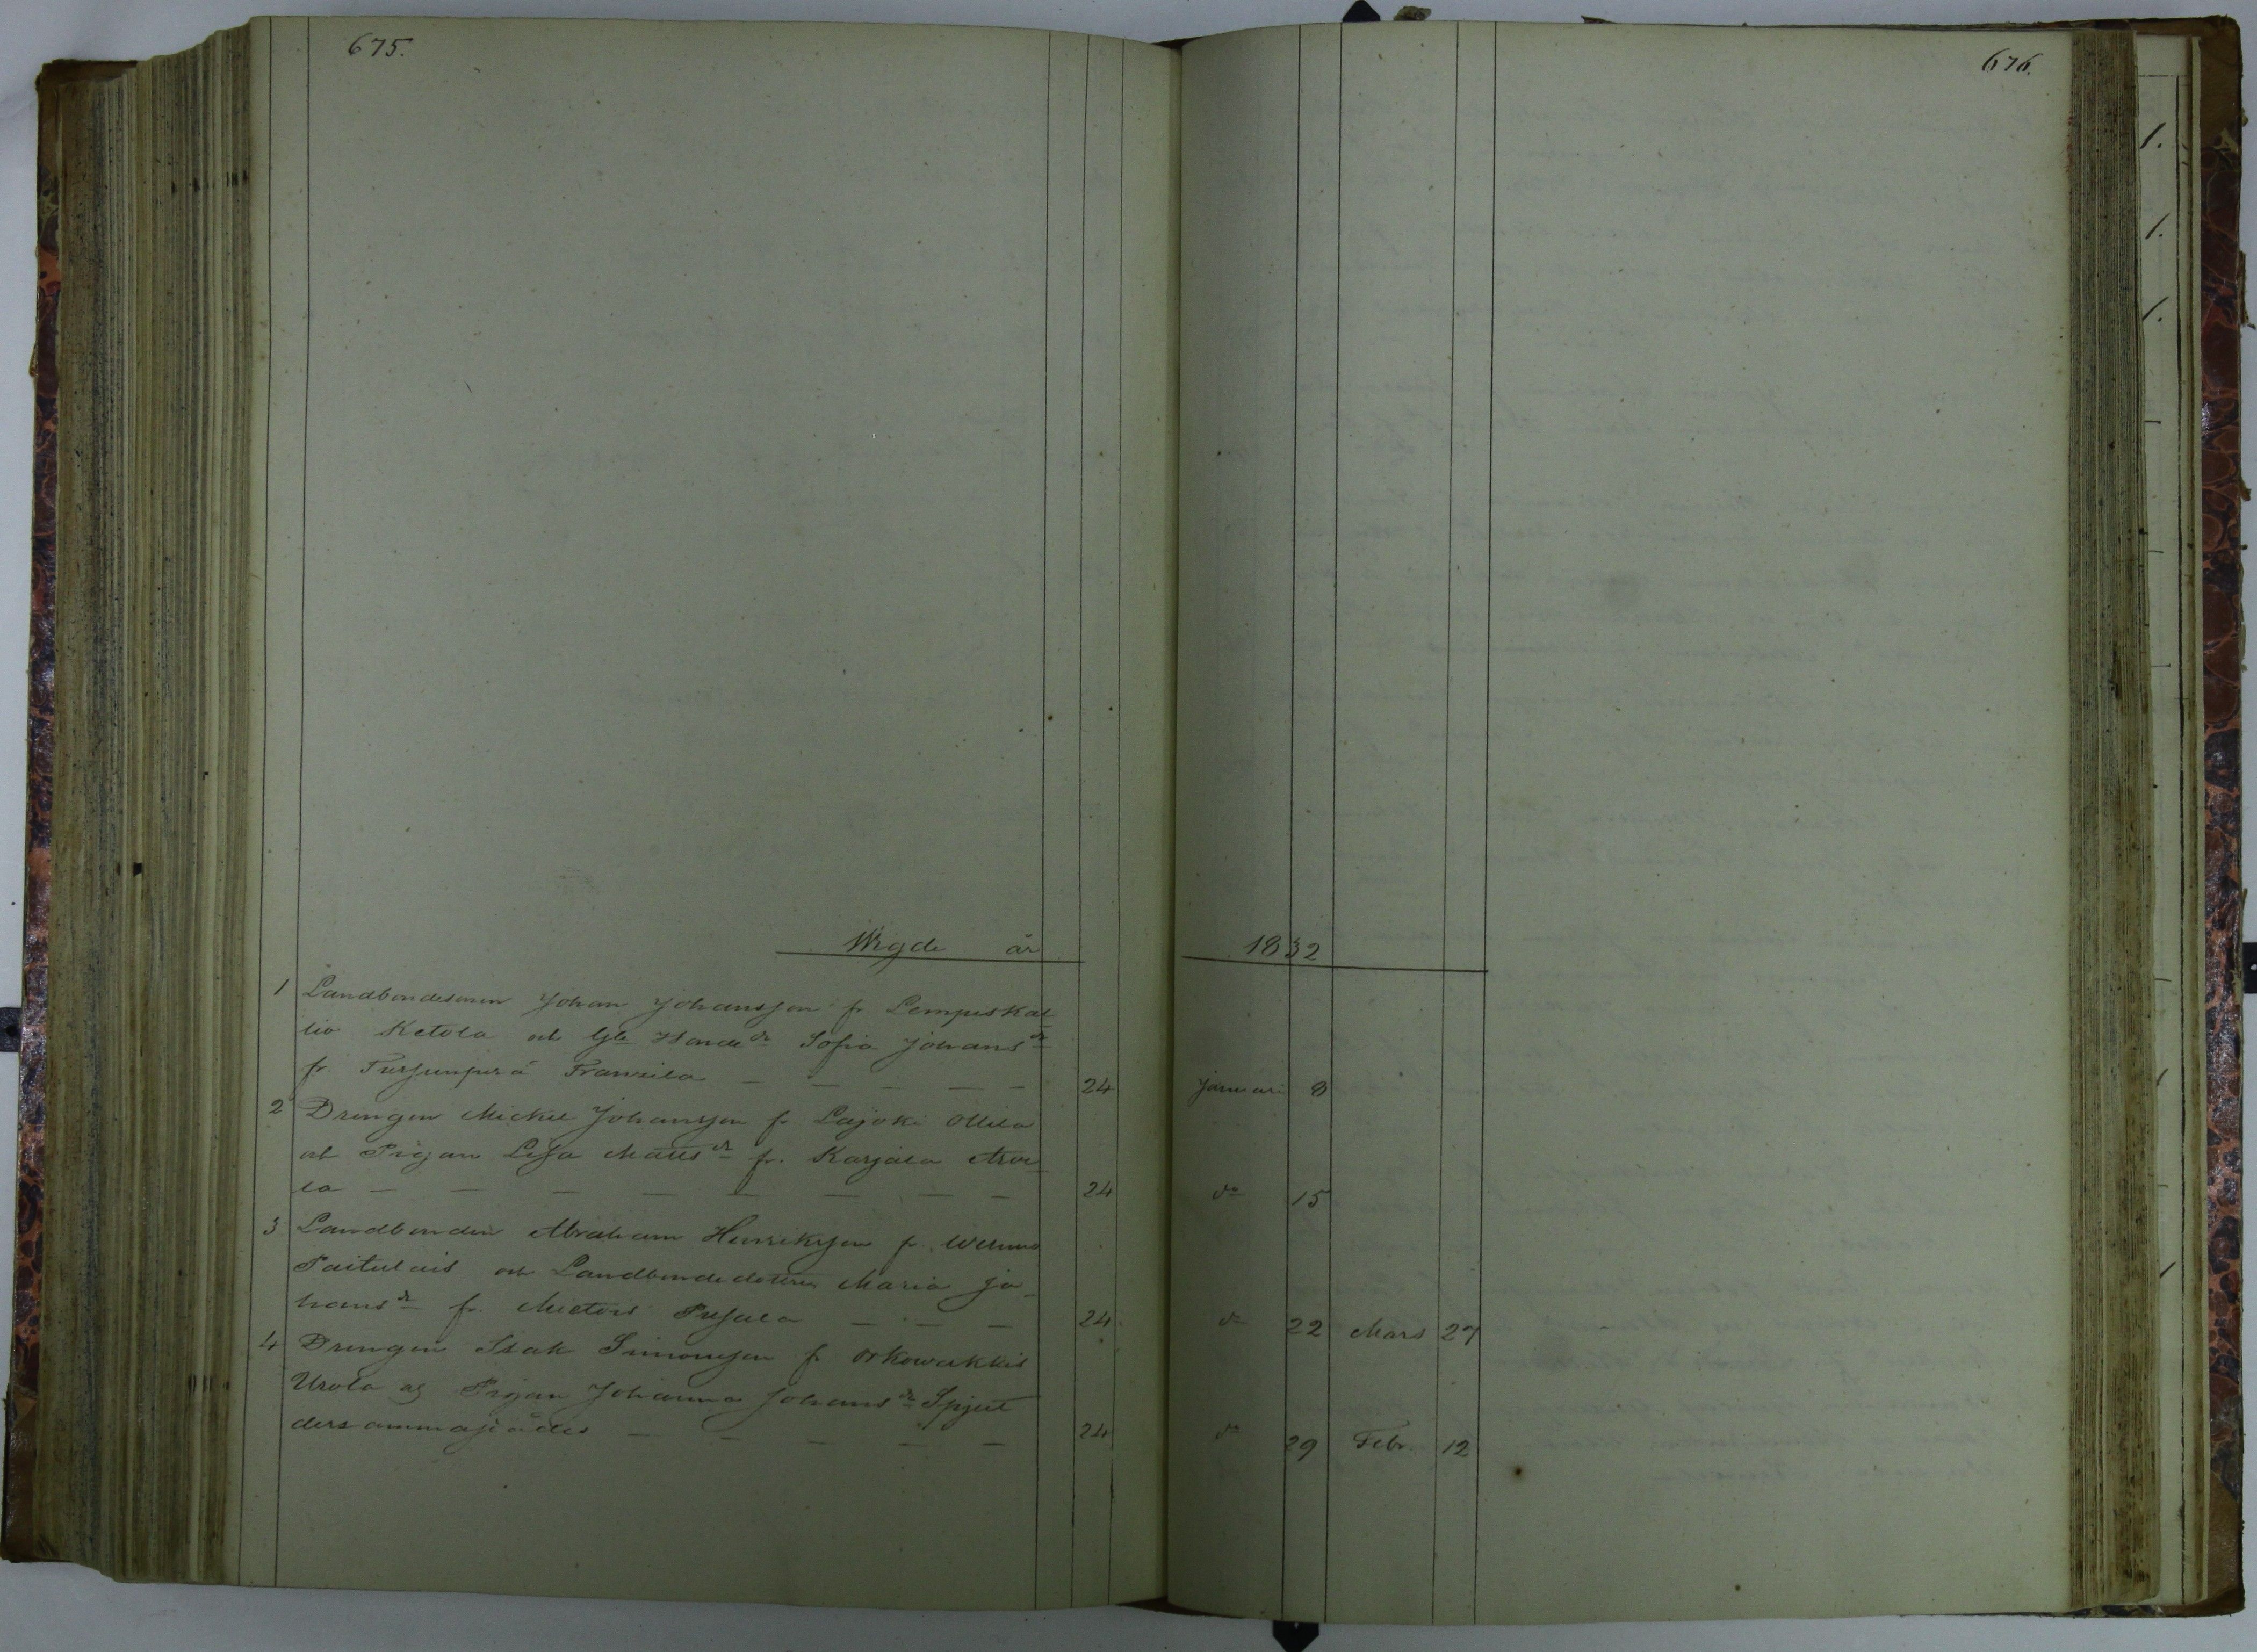 675.
676.
Wigde år 1832
1 Landbondesonen Johan Johansson fr Lempiskal
lio Ketola och Gle Hande dr Sofia Johans dr
fr. Tursunperä Franzila — — — — — 24 Januari 8
2 Drengen Mickel Johansson fr Lajoki Ollila
och Pigan Lisa Matts dr fr. Karjala Arve
la — — — — — — — — 24 do 15
3 Landbonden Abraham Henriksson fr. Wehmo
Paitulais och Landbondedotren Maria Jo
hans dr fr. Mietois Pusala — — — 24 do 22 Mars 27
4 Drengen Isak Simonsson fr Orkowerkkis
Urola och Pigan Johanna Johans dr Spjut
dersammastädes — — — — — 24 do 29 Febr. 12
1.
1.
1.